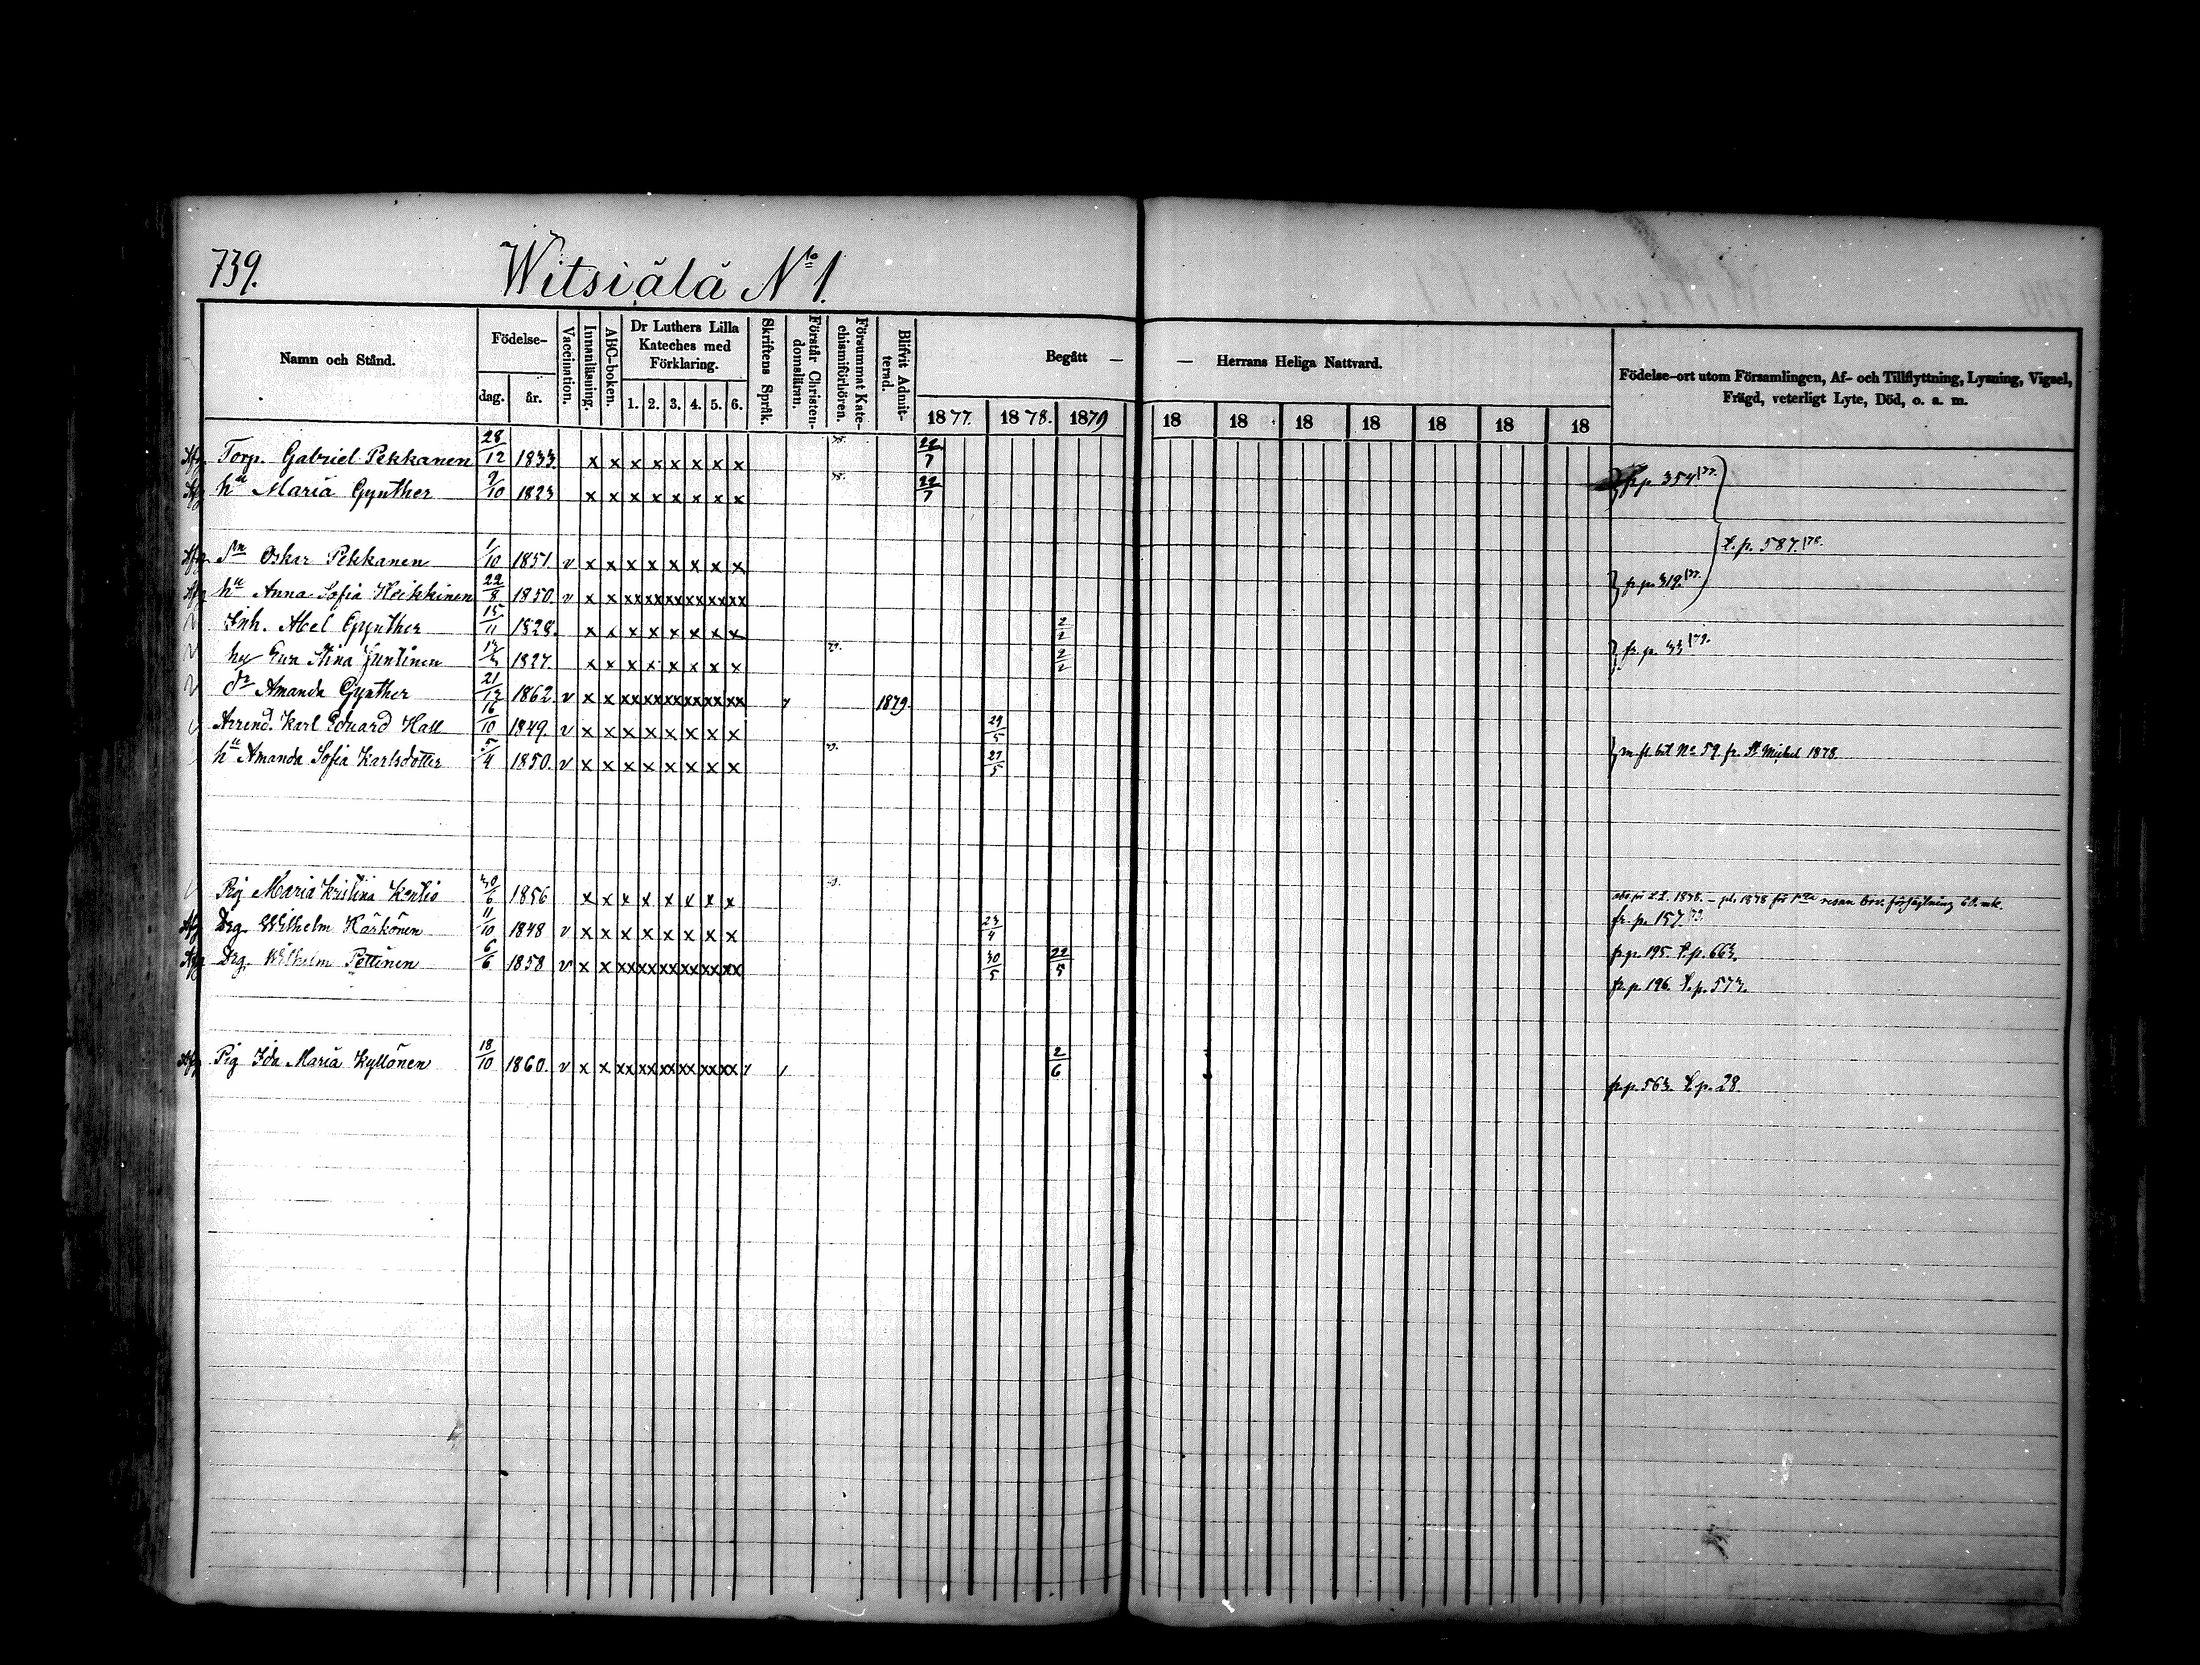 739. Witsiälä No 1.
Namn och Stånd. Födelse- dag. år. Vaccination. Innanläsning. ABC-boken. Dr Luthers Lilla Kateches med Förklaring. 1. 2. 3. 4. 5. 6. Skriftens Språk. Förstår Christendomsläran. Försummat Katechismiförhören. Blifvit Admitterad. Begått — — Herrans Heliga Nattvard. Födelse-ort utom Församlingen, Af- och Tillflyttning, Lysning, Vigsel, Frägd, veterligt Lyte, Död, o. a. m.
1877. 1878. 1879 18 18 18 18 18 18 18
Torp. Gabriel Pekkanen 28/12 1833. x x x x x x x x 22/7
hu Maria Gynther 9/10 1823 x x x x x x x x 22/7 fr p. 354 /77.
Sn Oskar Pekkanen 1/10 1851. v x x x x x x x x t. p. 587. /78.
hu Anna Sofia Heikkinen 22/8 1850. v x x xx xx xx xx xx xx fr p. 319. /77.
Inh. Abel Gynther 15/11 1828. x x x x x x x x 2/2
hu Eva Stina Juntinen 1827. x x x x x x x x 2/2 fr. p. 33 /79.
dr Amanda Gynther 21/12 1862. v x x xx xx xx xx xx xx 1879.
Arrend. Karl Eduard Hall 16/10 1849. v x x x x x x x x 29/5
hu Amanda Sofia Karlsdotter 5/4 1850. v x x x x x x x x 27/5 m. fl. bet No 59. fr. St Michel 1878.
Pig Maria Kristina Kontio 30/6 1856 x x x x x x x x
Drg. Wilhelm Härkönen 11/10 1848 v x x x x x x x x 23/4 fr. p. 157.
Drg. Wilhelm Pettinen 6/6 1858 v x x xx xx xx xx xx xx 30/5 22/5 fr p. 195. t. p. 663.
fr. p. 196. t. p. 573.
Pig Ida Maria Kyllönen 18/10 1860. v x x xx xx xx xx xx xx 2/6
fr p. 563. t. p. 28.